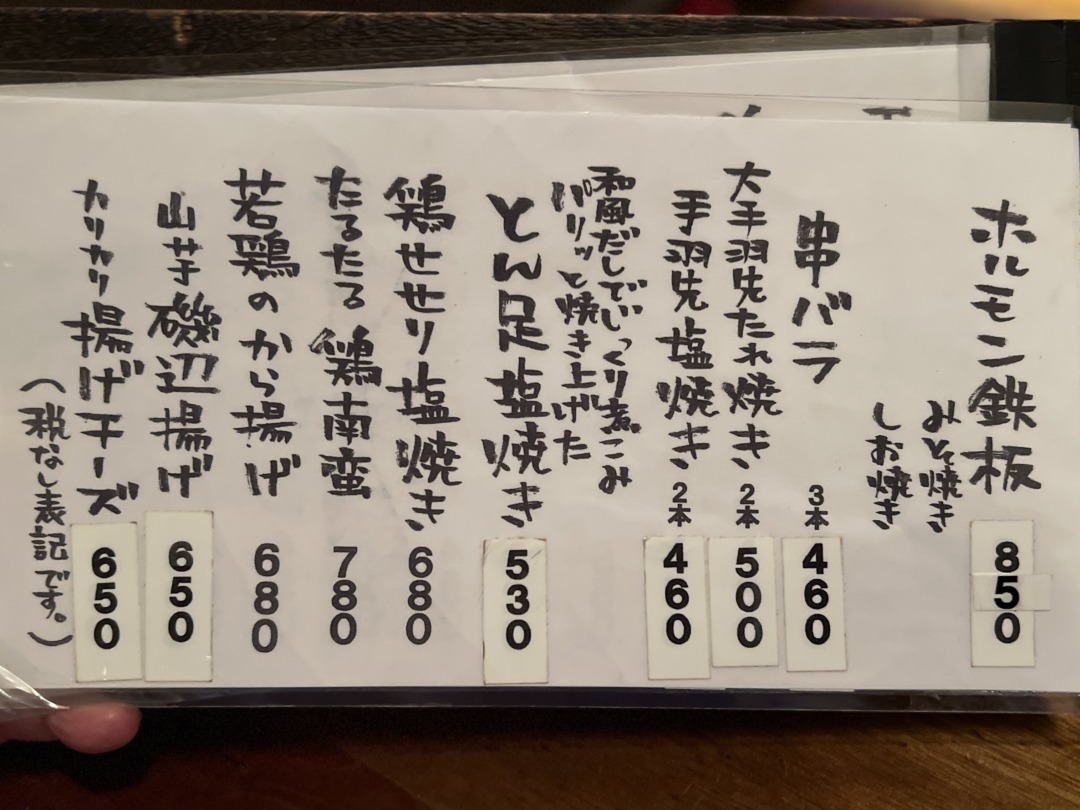 ホルモン鉄板 850
みそ焼き
しお焼き
串バラ 3本 460
大手羽先たれ焼き 2本 500
手羽先塩焼き 2本 460
和風だしでじっくり煮こみ
パリッと焼き上げた
とん足塩焼き 530
鶏せせり塩焼き 680
たるたる鶏南蛮 780
若鶏のから揚げ 680
山芋磯辺揚げ 650
カリカリ揚げチーズ 650
(税なし表記です。)